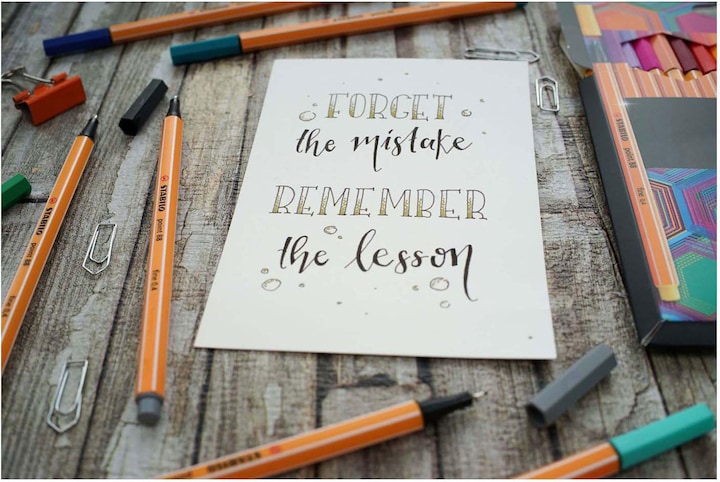 FORGET
the mistake
REMEMBER
the lesson
STABILO point 88 fine 0.4
STABILO point 88 fine 0.4
STABILO
STABILO point 88